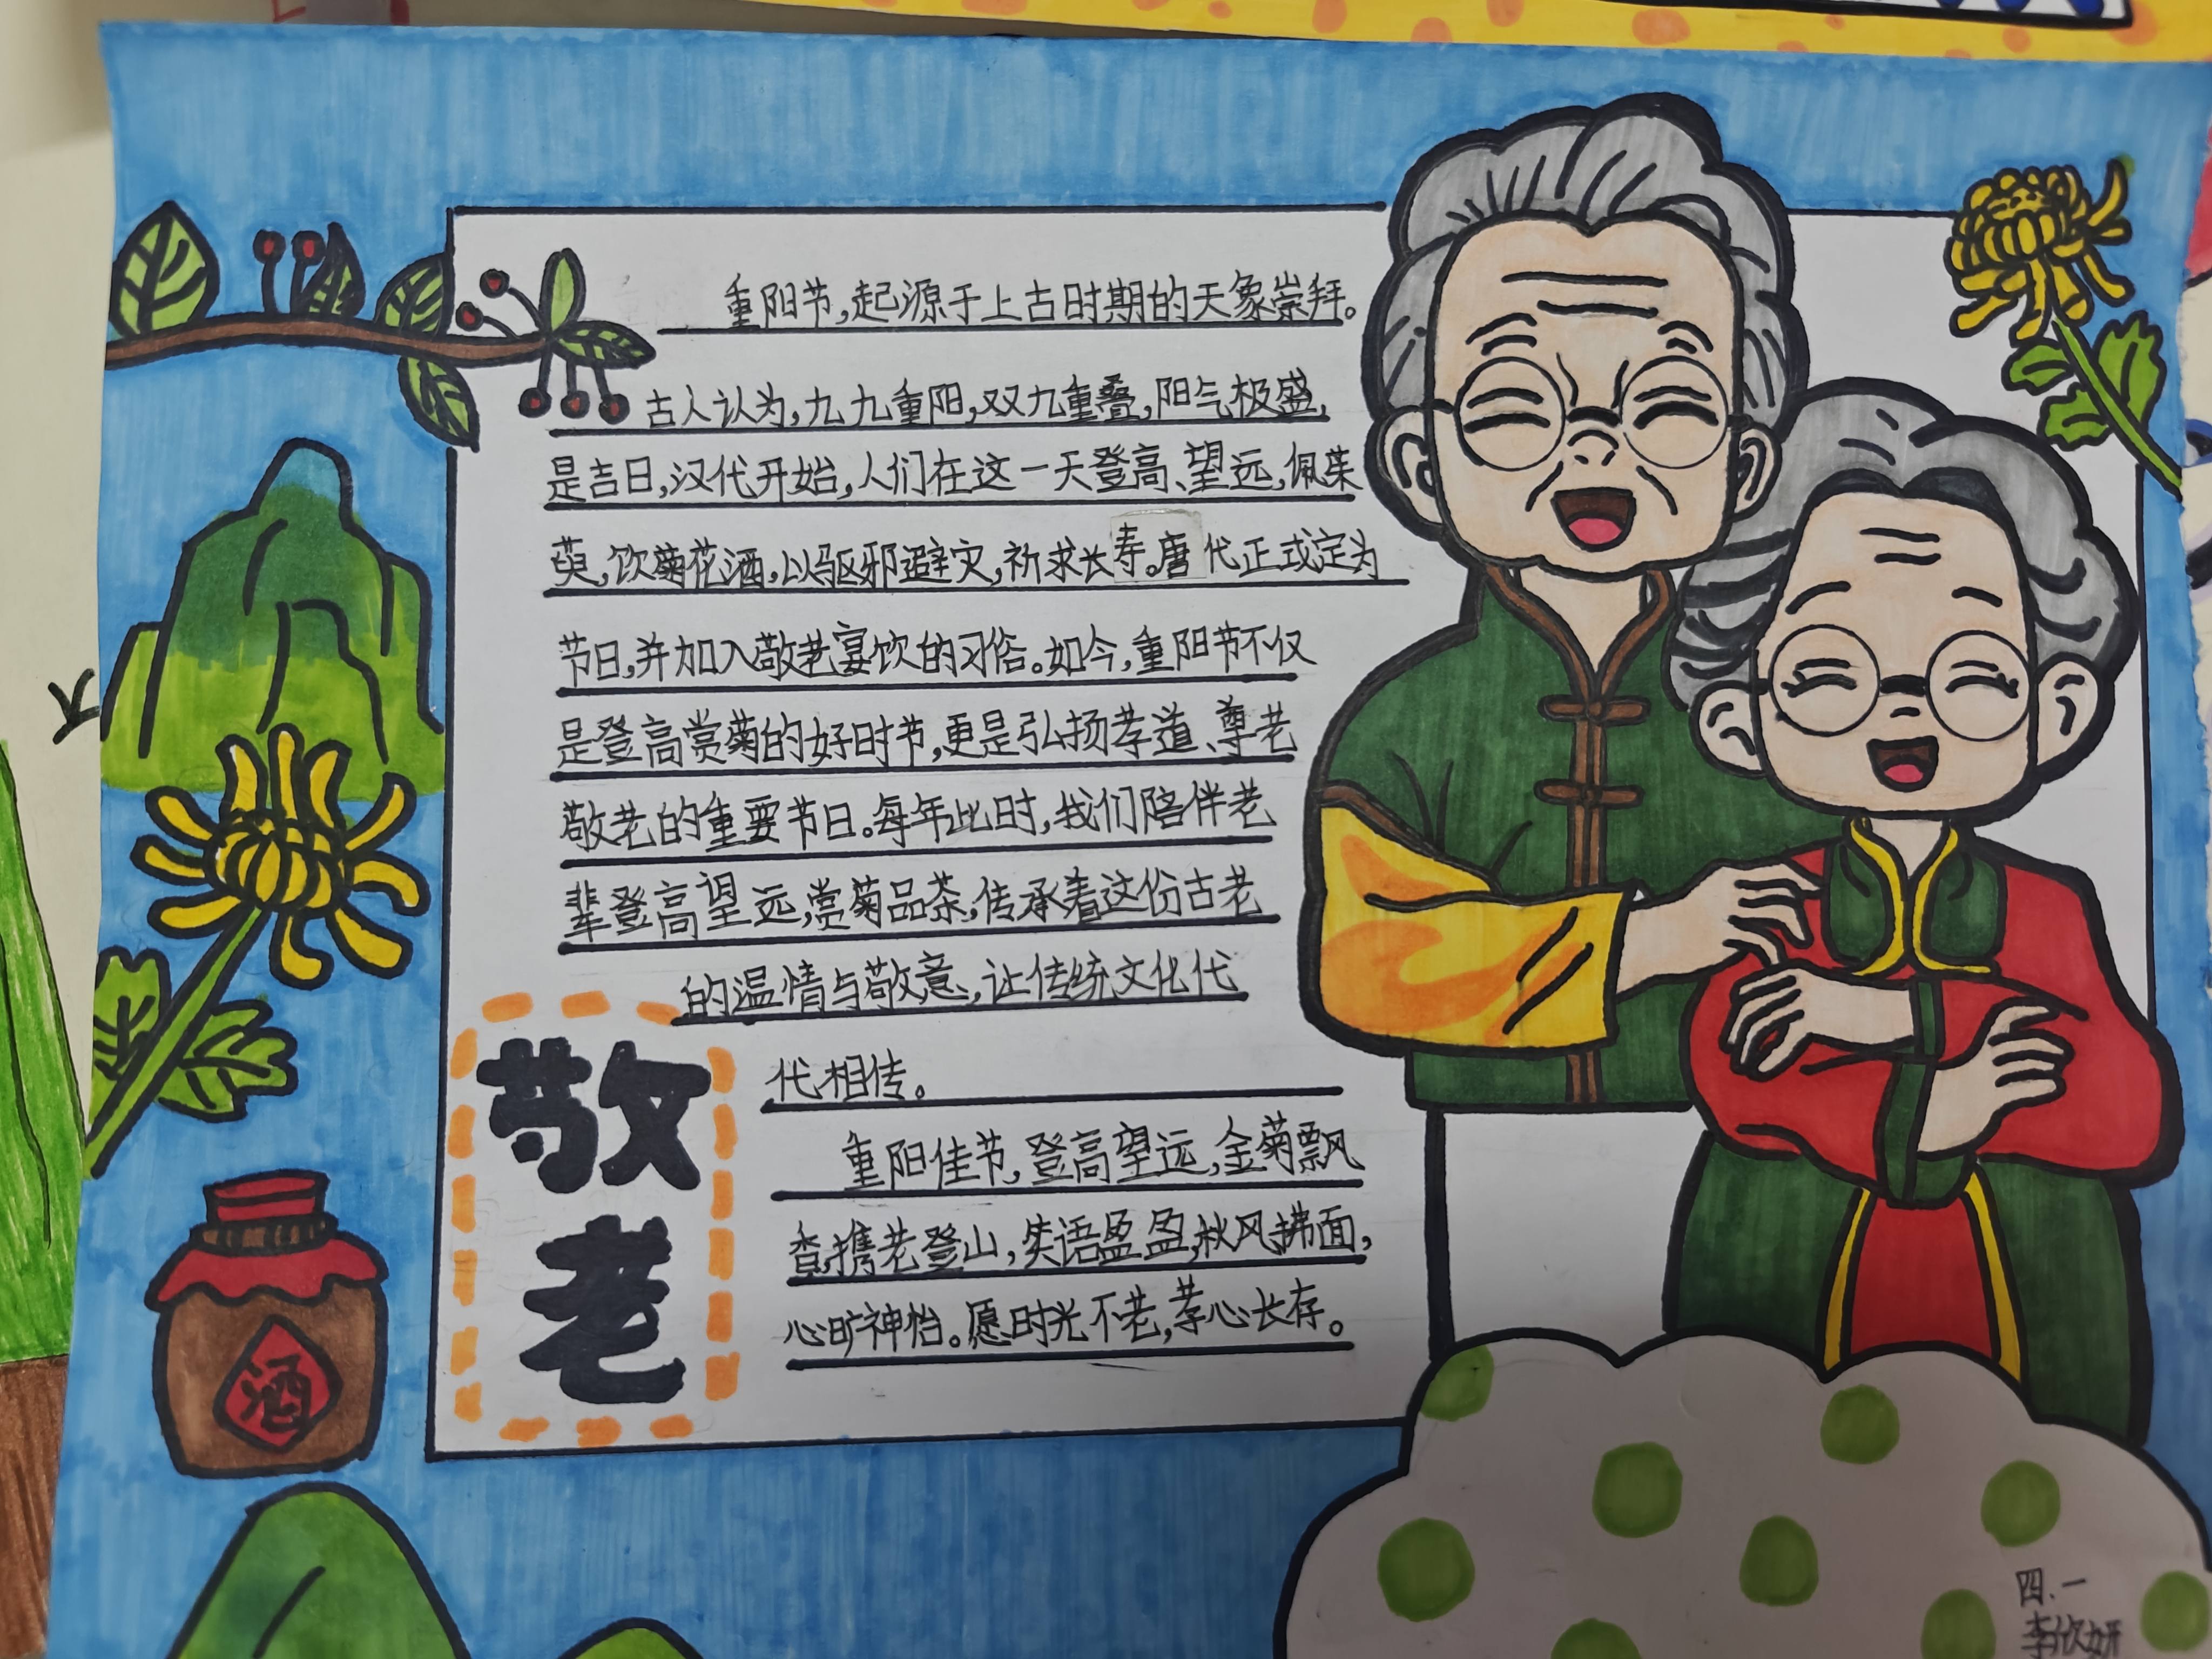 重阳节,起源于上古时期的天象崇拜。
古人认为,九九重阳,双九重叠,阳气极盛,
是吉日,汉代开始,人们在这一天登高、望远,佩茱
萸,饮菊花酒,以驱邪避灾,祈求长寿。唐代正式定为
节日,并加入敬老宴饮的习俗。如今,重阳节不仅
是登高赏菊的好时节,更是弘扬孝道、尊老
敬老的重要节日。每年此时,我们陪伴老
辈登高望远,赏菊品茶,传承着这份古老
的温情与敬意,让传统文化代
代相传。
重阳佳节,登高望远,金菊飘
香,携老登山,笑语盈盈,秋风拂面,
心旷神怡。愿时光不老,孝心长存。
敬
老
酒
四、一
李欣妍